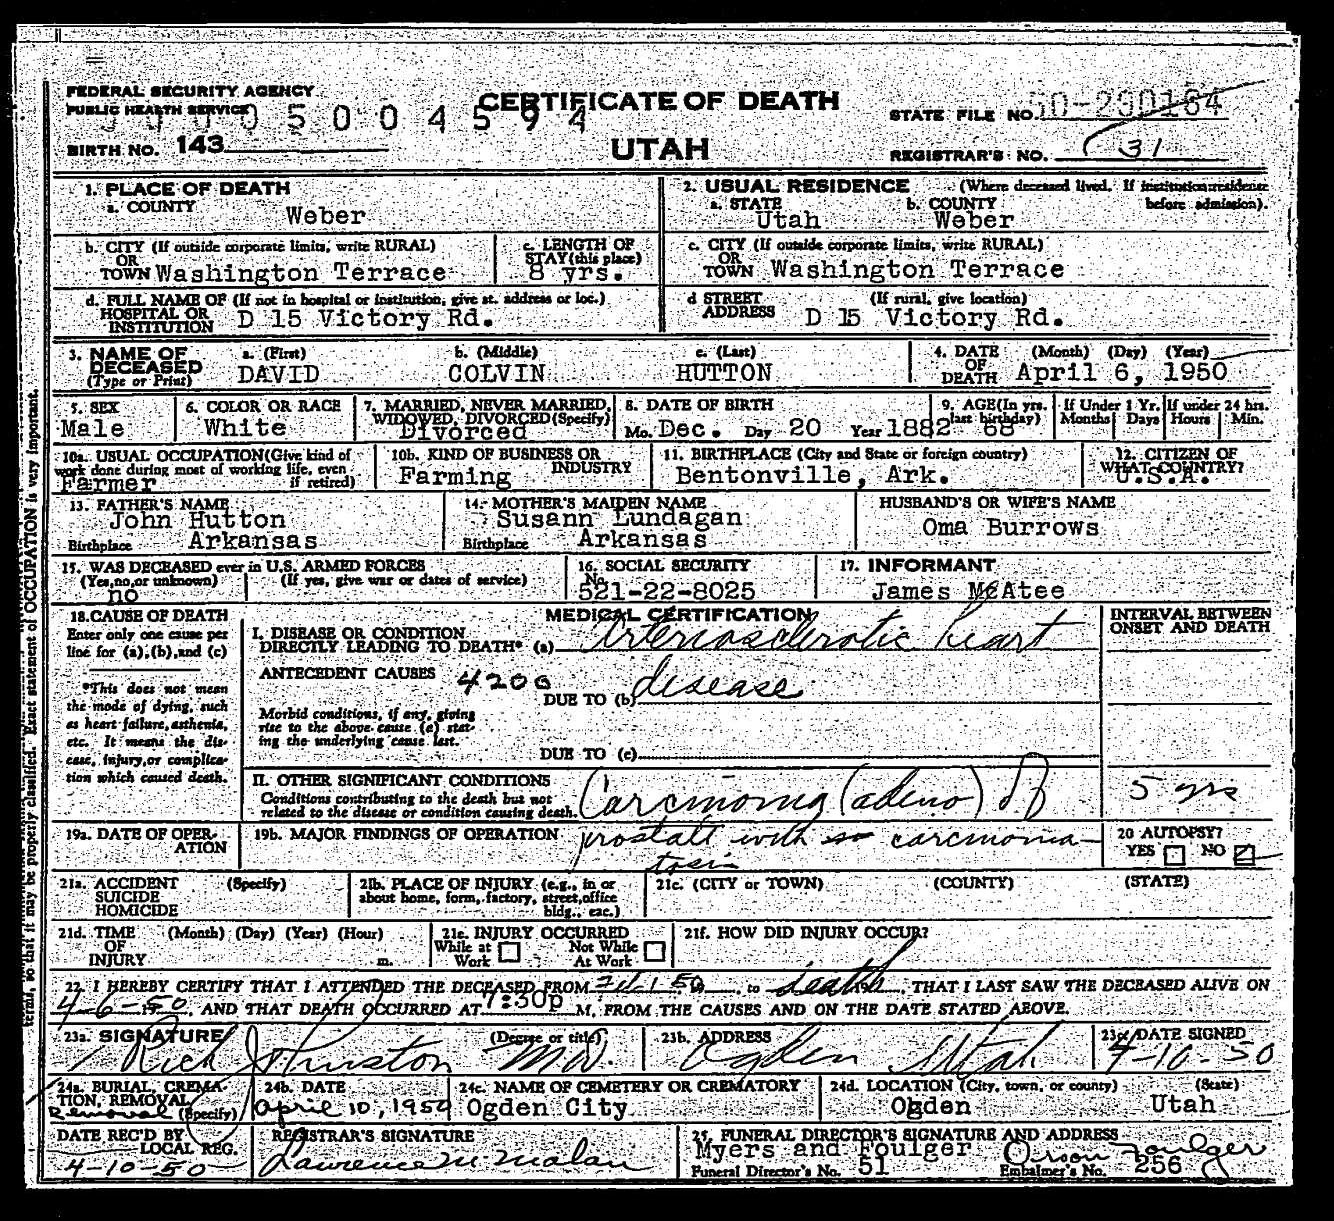 FEDERAL SECURITY AGENCY
PUBLIC HEALTH SERVICE
CERTIFICATE OF DEATH
STATE FILE NO.
5 0 0 4 5 9 4
BIRTH NO. 143
UTAH
REGISTRAR'S NO. 31
1. PLACE OF DEATH
a. COUNTY
Weber
2. USUAL RESIDENCE (Where deceased lived. If institution: residence before admission).
a. STATE b. COUNTY
Utah Weber
b. CITY (If outside corporate limits, write RURAL)
OR
TOWN Washington Terrace
c. LENGTH OF
STAY (this place)
8 yrs.
c. CITY (If outside corporate limits, write RURAL)
OR
TOWN Washington Terrace
d. FULL NAME OF (If not in hospital or institution, give st. address or loc.)
HOSPITAL OR
INSTITUTION D 15 Victory Rd.
d STREET (If rural, give location)
ADDRESS D 15 Victory Rd.
3. NAME OF
DECEASED
(Type or Print)
a. (First) b. (Middle) c. (Last)
DAVID COLVIN HUTTON
4. DATE (Month) (Day) (Year)
OF
DEATH April 6, 1950
5. SEX
Male
6. COLOR OR RACE
White
7. MARRIED, NEVER MARRIED,
WIDOWED, DIVORCED (Specify)
Divorced
8. DATE OF BIRTH
Mo. Dec. Day 20 Year 1882
9. AGE (In yrs.
last birthday)
68
If Under 1 Yr.
Months Days
If under 24 hrs.
Hours Min.
10a. USUAL OCCUPATION (Give kind of
work done during most of working life, even
if retired)
Farmer
10b. KIND OF BUSINESS OR
INDUSTRY
Farming
11. BIRTHPLACE (City and State or foreign country)
Bentonville, Ark.
12. CITIZEN OF
WHAT COUNTRY?
U.S.A.
13. FATHER'S NAME
John Hutton
Birthplace Arkansas
14. MOTHER'S MAIDEN NAME
Susann Lundagan
Birthplace Arkansas
HUSBAND'S OR WIFE'S NAME
Oma Burrows
15. WAS DECEASED ever in U.S. ARMED FORCES
(Yes, no, or unknown) (If yes, give war or dates of service)
no
16. SOCIAL SECURITY
No.
521-22-8025
17. INFORMANT
James McAtee
18. CAUSE OF DEATH
Enter only one cause per
line for (a), (b), and (c)
*This does not mean
the mode of dying, such
as heart failure, asthenia,
etc. It means the dis-
ease, injury, or complica-
tion which caused death.
MEDICAL CERTIFICATION
INTERVAL BETWEEN
ONSET AND DEATH
I. DISEASE OR CONDITION
DIRECTLY LEADING TO DEATH* (a) Arteriosclerotic heart
ANTECEDENT CAUSES 4200
DUE TO (b) disease
Morbid conditions, if any, giving
rise to the above cause (a) stat-
ing the underlying cause last.
DUE TO (c)
II. OTHER SIGNIFICANT CONDITIONS
Conditions contributing to the death but not
related to the disease or condition causing death.
Carcinoma (adeno) of
5 yrs
19a. DATE OF OPER-
ATION
19b. MAJOR FINDINGS OF OPERATION
prostate with carcinoma-
tosis
20 AUTOPSY?
YES NO
21a. ACCIDENT (Specify)
SUICIDE
HOMICIDE
21b. PLACE OF INJURY (e.g., in or
about home, form, factory, street, office
bldg., eac.)
21c. (CITY or TOWN) (COUNTY) (STATE)
21d. TIME (Month) (Day) (Year) (Hour)
OF
INJURY m.
21e. INJURY OCCURRED
While at Work Not While At Work
21f. HOW DID INJURY OCCUR?
22. I HEREBY CERTIFY THAT I ATTENDED THE DECEASED FROM , to death 19 , THAT I LAST SAW THE DECEASED ALIVE ON
4-6-50, AND THAT DEATH OCCURRED AT 7:30p M, FROM THE CAUSES AND ON THE DATE STATED ABOVE.
23a. SIGNATURE (Degree or title)
Rich Johnston M.D.
23b. ADDRESS
Ogden Utah
23c. DATE SIGNED
4-10-50
24a. BURIAL, CREMA-
TION, REMOVAL
(Specify)
Removal
24b. DATE
April 10, 1950
24c. NAME OF CEMETERY OR CREMATORY
Ogden City
24d. LOCATION (City, town, or county) (State)
Ogden Utah
DATE REC'D BY
LOCAL REG.
4-10-50
REGISTRAR'S SIGNATURE
Lawrence M. Malan
25. FUNERAL DIRECTOR'S SIGNATURE AND ADDRESS
Myers and Foulger Orson Foulger
Funeral Director's No. 51 Embalmer's No. 256
terms, so that it may be properly classified. Exact statement of OCCUPATION is very important.